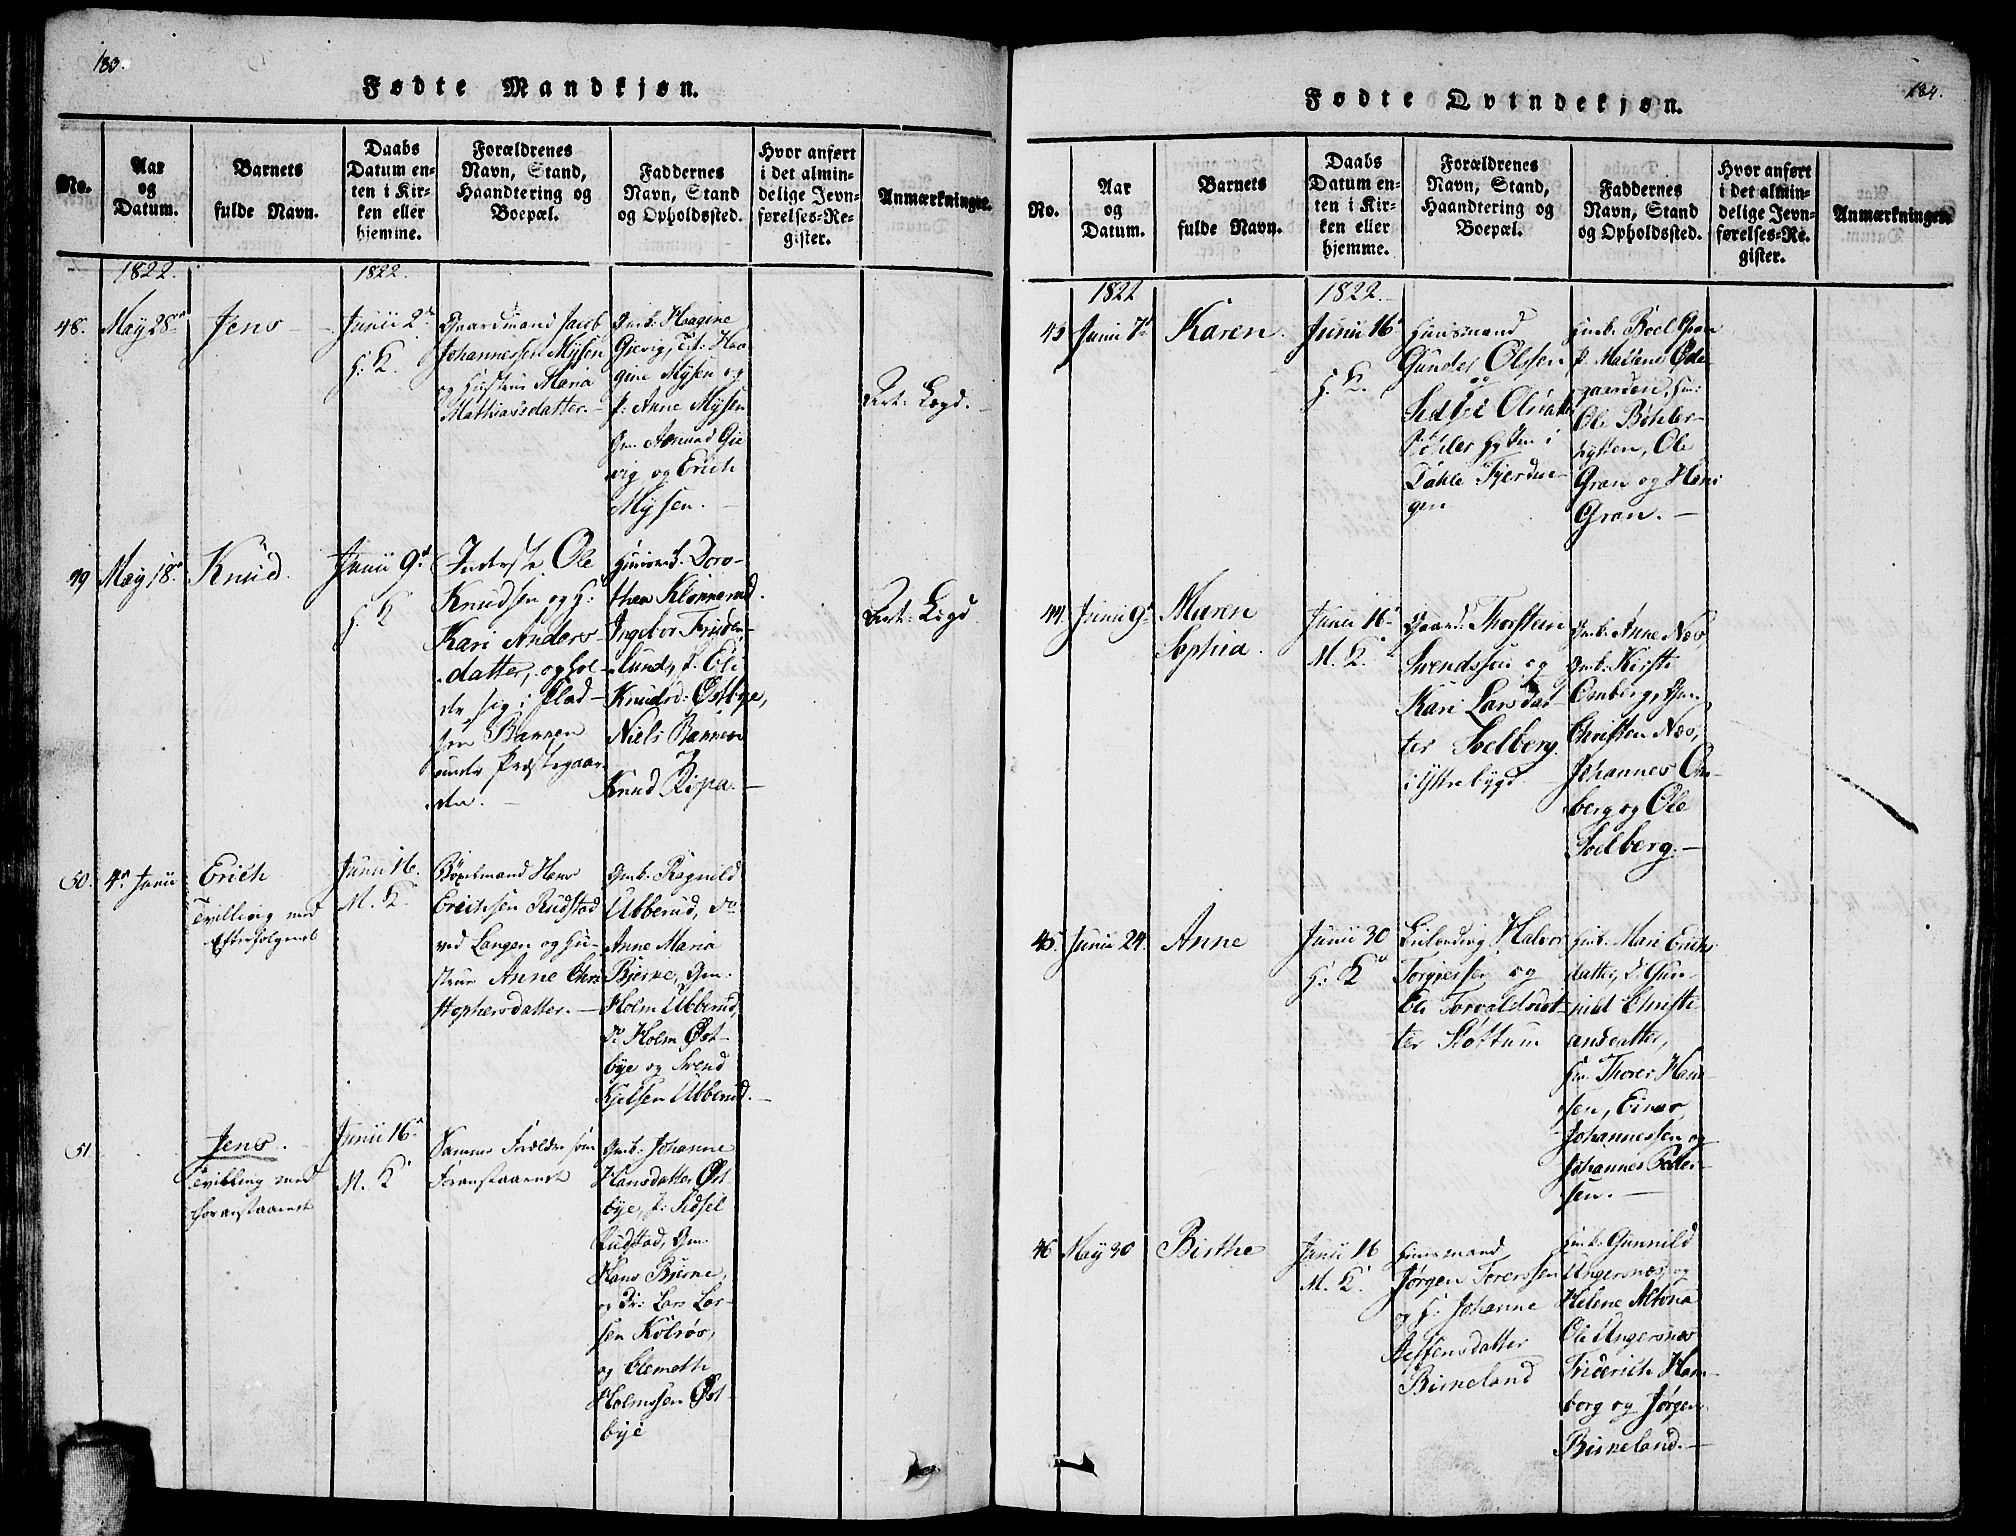 183.
Fødte Mandkjøn.
No.
Aar
og
Datum.
Barnets
fulde Navn.
Daabs
Datum en-
ten i Kir-
ken eller
hjemme.
Forældrenes
Navn, Stand,
Haandtering og
Boepæl.
Faddernes
Navn, Stand
og Opholdssted.
Hvor anført
i det almin-
delige Jevn-
førelses-Re-
gister.
Anmærkninger.
1822.
1822.
48.
May 28de
Jens
Junii 2de
H: K.
Gaardmand Jacob
Johannessen Mysen
og Hustrue Maria
Mathiasdatter.
Gmk: Haagine
Gievig,
gine Mysen og
P: Anne Mysen
Gm: Asmund Gie
vig og Erich
Mysen.
Legd.
49
May 18de
Knud.
Junii 9de
H: K
Inderste Ole
Knudsen og H:
Kari Anders-
datter, ophol-
de sig i Plad-
sen Bannen
under Præstegaar-
den.
Huusmd: Doro-
thea Klonnerud.
Ingebor
lund, P. Eli
Knudsd: Østbye,
Niels Bannen
og
Knud Rispa.
Legd
50.
4de Junii
Erich
Tvilling med
Efterfølgende
Junii 16.
M. K.
Bøxelmand Hans
Erichsen Rudstad
ved Langen og Hu-
strue Anne Chri
stophersdatter.
Gmk: Ragnild
Ubberud, do
Anne Maria
Bjerke, Gm:
Holm Ubberud,
do Holm Øst-
bye og Svend
Kjelsen Ubberud.
51
Jens.
Tvilling med
foranstaaende
Junii 16de
M. K.
Samme Forældre som
Foranstaaende
Gmk: Johanne
Hansdatter Øst-
bye, P: Sidsel
Rudstad, Gm:
Hans Bjerke,
og Dr: Lars Lar-
sen Kolsrøs,
og Clemeth
Holmssen Øst-
bye
184.
Fødte Qvindekjøn.
No.
Aar
og
Datum.
Barnets
fulde Navn.
Daabs
Datum en-
ten i Kir-
ken eller
hjemme.
Forældrenes
Navn, Stand,
Haandtering og
Boepæl.
Faddernes
Navn, Stand
og Opholdssted.
Hvor anført
i det almin-
delige Jevn-
førelses-Re-
gister.
Anmærkninger.
1822
1822.
43
Junii 7de
Karen.
Junii 16de
H. K.
Huusmand
Gunder Olssen
og
Sidsel Olsdatter
Bøhlerhytten i
Dahle Fjerdin-
gen
Hmk: Boel Gran
P. Mallene Øde
gaarden, Hm:
Ole Bøhler-
hytten, Ole
Gran og Hans
Gran.
44.
Junii 9de
Maren
Sophia.
Junii 16de
M. K.
Gaardm: Thorstein
Svendssen og
Kari Larsdat-
ter Solberg
i Ytrebygd.
Gmk: Anne Næs,
Gmk: Kirsti
Omberg, Gm:
Christen Næs,
Johannes Om-
berg og Ole
Solberg.
45.
Junii 24.
Anne
Junii 30
H: K.
Leilending Halvor
Torgiersen og
Eli Torvaldsdat-
ter Støttum
Hmk: Mari Erichs
datter, P. Gun-
nild Christi-
ansdatter,
Hm: Thorer Han-
sen, Einar
Johannessen og
Johannes Peter-
sen.
46
May 30
Birthe
Junii 16
M. K.
Huusmand
Jørgen Torerssen
og H. Johanne
Steffensdatter
Birkeland
Hmk: Gunnild
Ungersnæs, og
Helene Altona
Ole Ungersnæs
Friderich Ham-
borg og Jørgen
Birkeland.